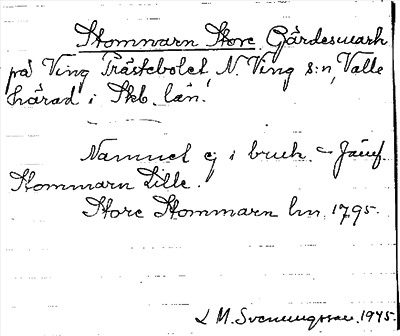 Stommarn Store. Gärdesmark
på Ving Prästebolet, N. Ving s:n, Valle
härad i Skb. län.
Namnet ej i bruk. - Jämf.
Stommarn Lille.
Store Stommarn hm. 1795.
L M. Svenungsson. 1945.